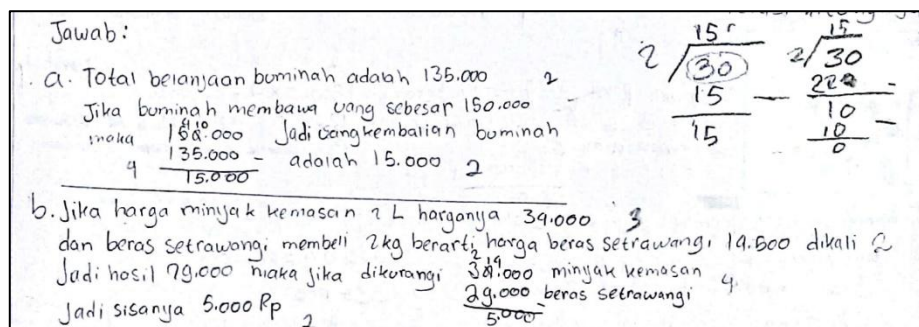 Jawab:
a. Total belanjaan buminah adalah 135.000 2
Jika buminah membawa uang sebesar 150.000
maka 150.000 Jadi uang kembalian buminah
4 135.000 - adalah 15.000 2
15.000
b. Jika harga minyak kemasan 2 L harganya 34.000 3
dan beras setrawangi membeli 2kg berarti harga beras setrawangi 14.500 dikali 2
Jadi hasil 29.000 maka jika dikurangi 34.000 minyak kemasan
29.000 beras setrawangi 4
Jadi sisanya 5.000 Rp 5.000
2
15
2 30
15 -
15
15
2 30
10
10 -
0